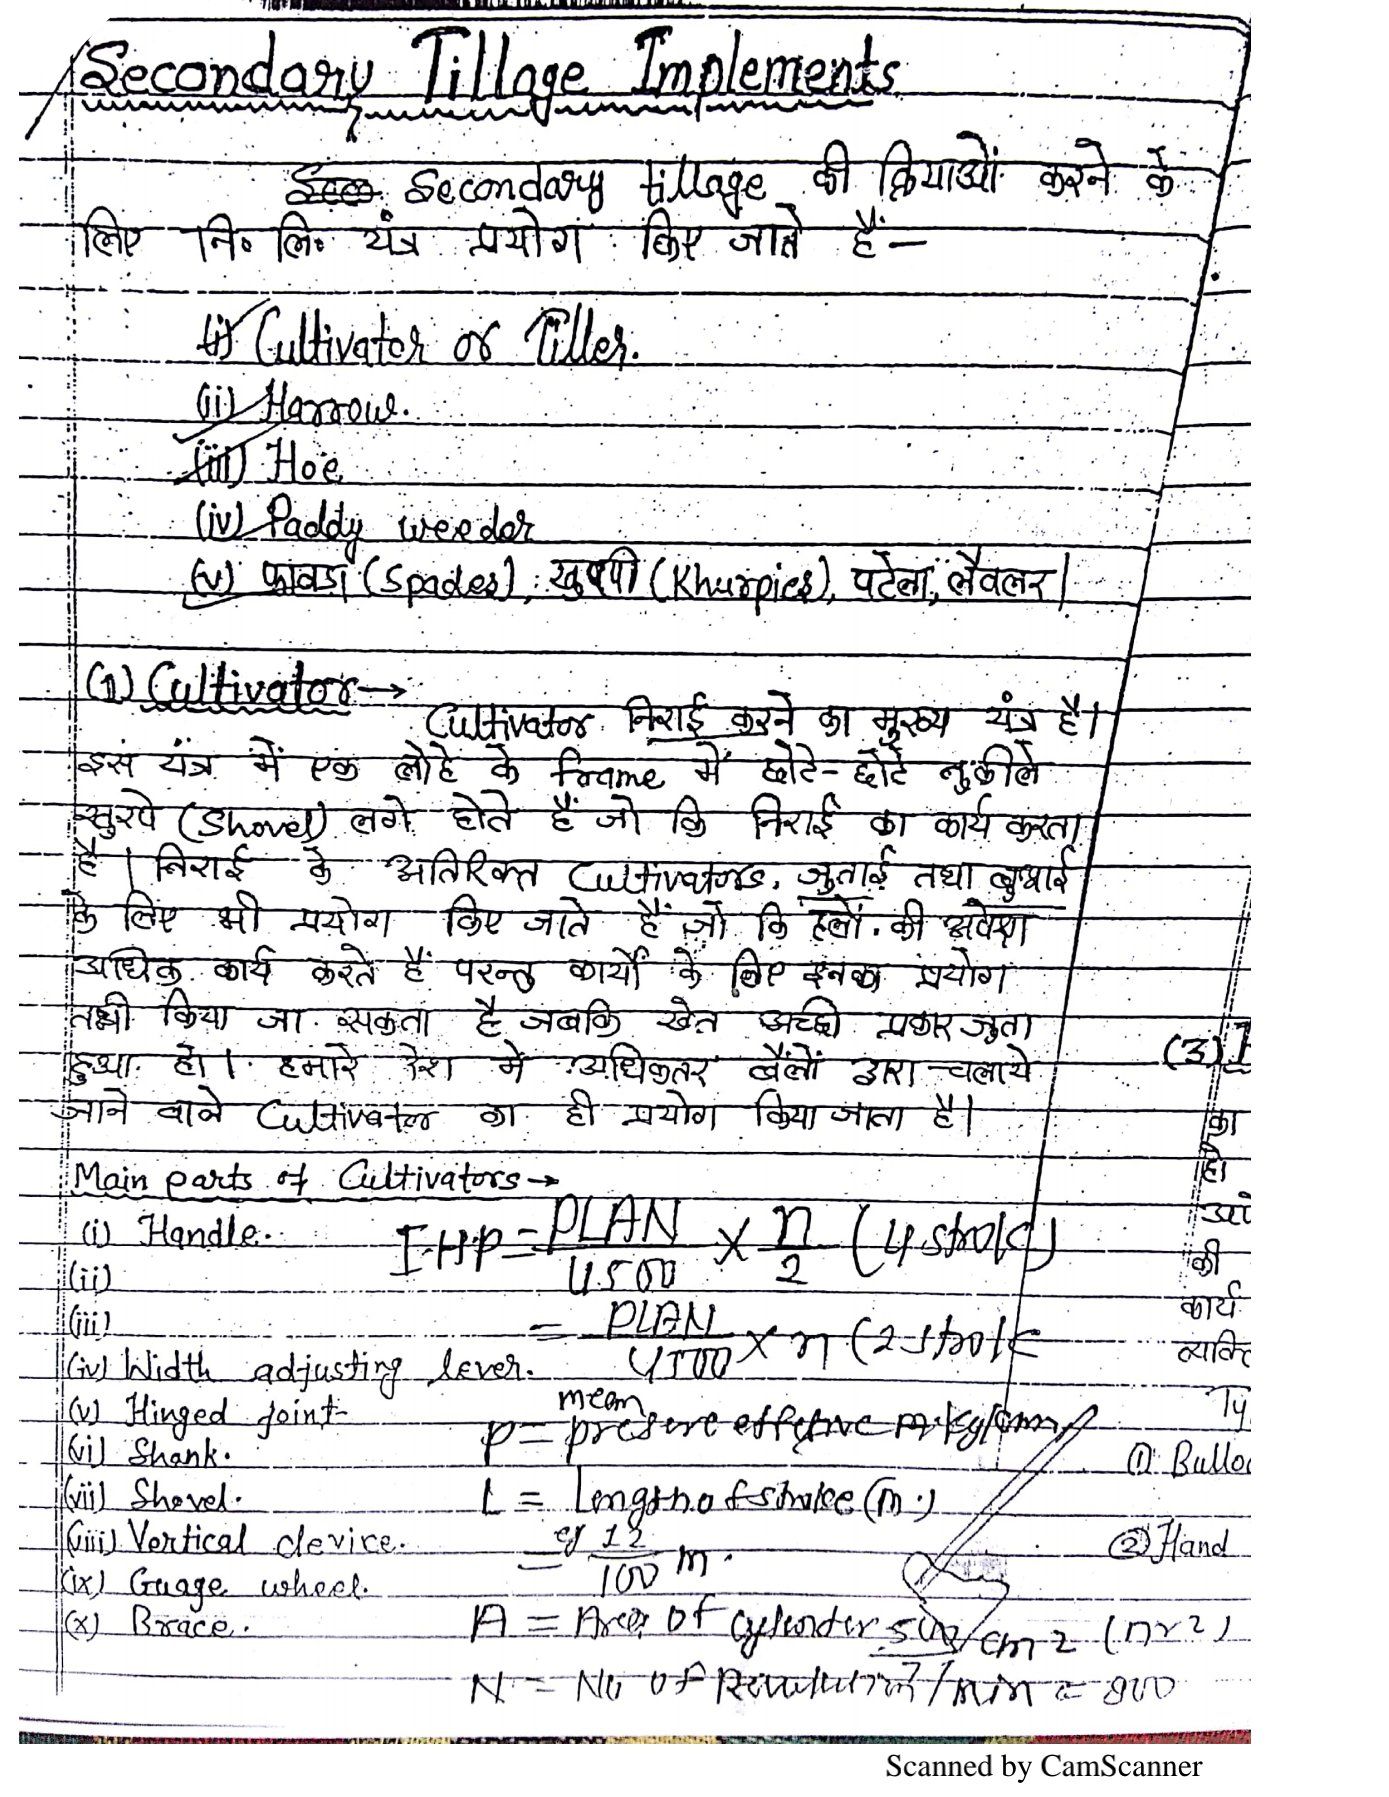 Secondary Tillage Implements
Secondary tillage की क्रियाओं करने के
लिए नि० लि० यंत्र प्रयोग किए जाते हैं –
(i) Cultivator or Tiller.
(ii) Harrow.
(iii) Hoe
(iv) Paddy weeder
(v) फावडा (Spades), खुरपी (Khurpies), पटेला, लैवलर|
(1) Cultivator →
Cultivator निराई करने का मुख्य यंत्र है।
इस यंत्र में एक लोहे के frame में छोटे-छोटे नुकीले
खुरपे (Shovel) लगे होते हैं जो कि निराई का कार्य करता
है। निराई के अतिरिक्त Cultivators, जुताई तथा बुआई
के लिए भी प्रयोग किए जाते हैं जो कि हलों की अपेक्षा
अधिक कार्य करते हैं परन्तु कार्यों के लिए इनका प्रयोग
तभी किया जा सकता है जबकि खेत अच्छी प्रकार जुता
हुआ हो। हमारे देश में अधिकतर बैलों द्वारा चलाये
जाने वाले Cultivator का ही प्रयोग किया जाता है।
Main parts of Cultivators →
(i) Handle.
(ii)
(iii)
(iv) Width adjusting lever.
(v) Hinged joint
(vi) Shank.
(vii) Shovel.
(viii) Vertical device.
(ix) Guage wheel.
(x) Brace.
I.H.P = PLAN/4500 × n/2 (4 stroke)
= PLAN/4500 × n (2 stroke
P = mean pressure effective m. kg/cm
L = Length of stroke (m.)
= eg 12/100 m.
A = Area of cylinder 500 cm2 (πr2)
N = No of Revolution / min = 800
(3)
का
हो
की
कार्य
व्यक्ति
Ty
① Bulloc
② Hand
Scanned by CamScanner